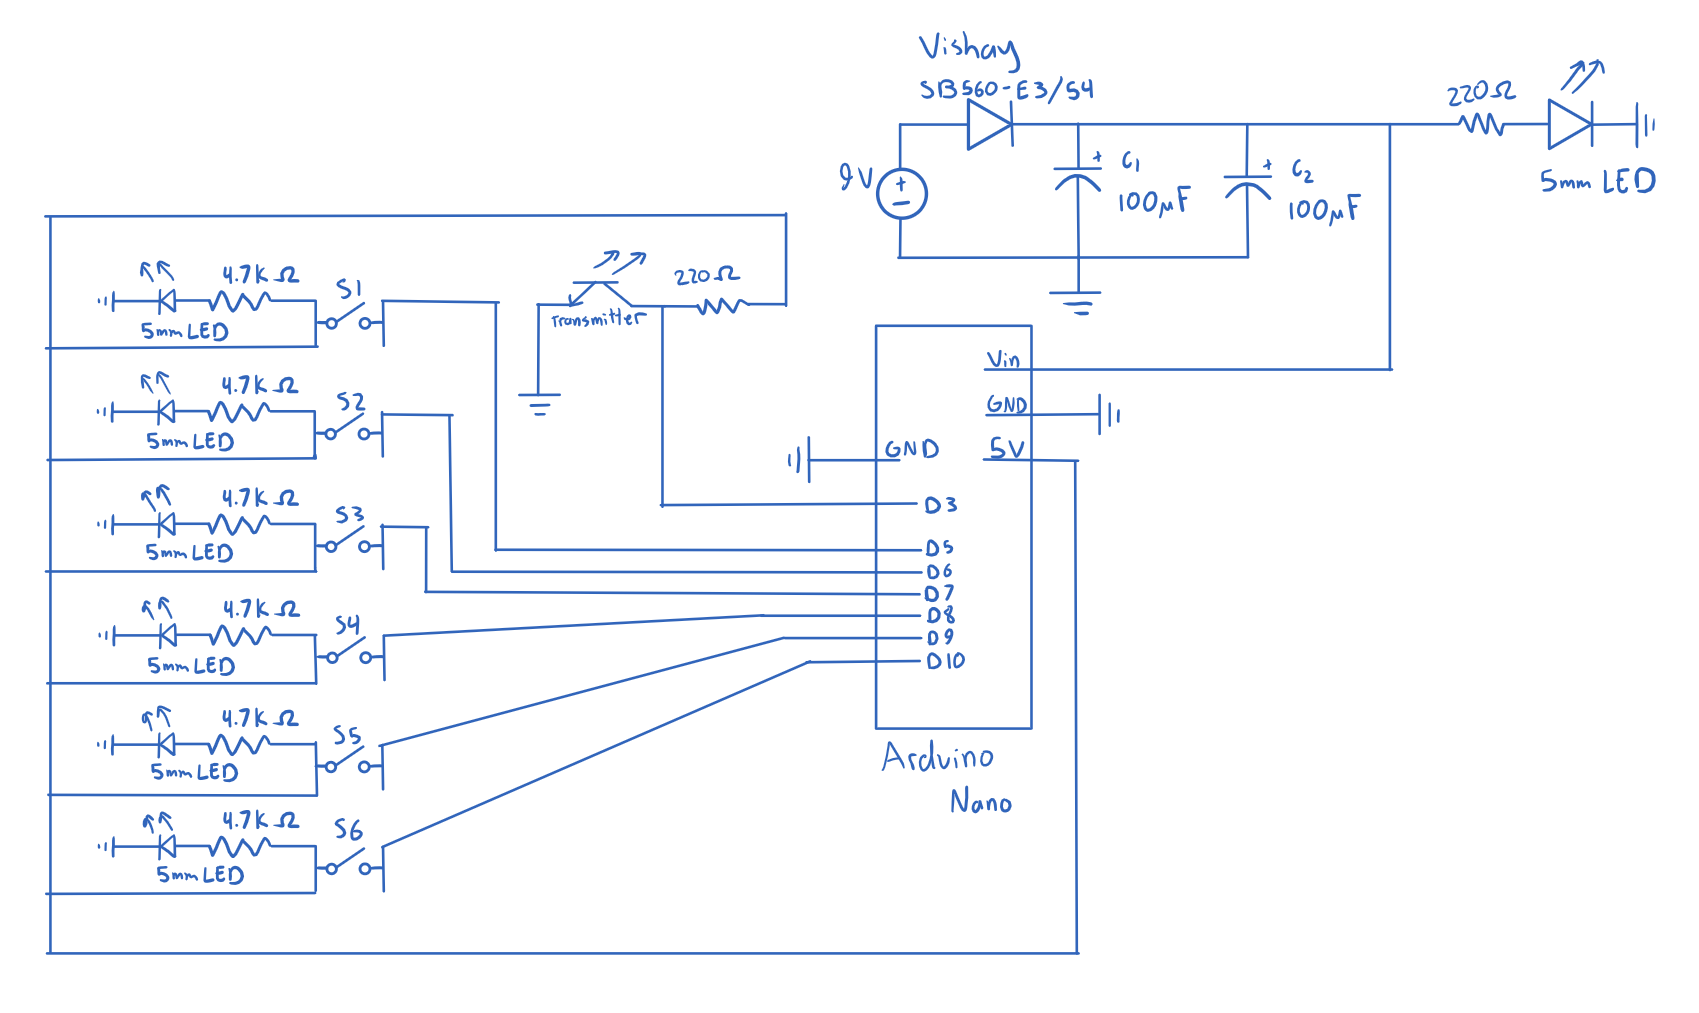 Vishay
SB560-E3/54
220Ω
9V
+
−
+ C1
100μF
+ C2
100μF
5mm LED
4.7K Ω
S1
5mm LED
220Ω
Transmitter
4.7K Ω
S2
5mm LED
4.7K Ω
S3
5mm LED
4.7K Ω
S4
5mm LED
4.7K Ω
S5
5mm LED
4.7K Ω
S6
5mm LED
Vin
GND
GND
5V
D3
D5
D6
D7
D8
D9
D10
Arduino
Nano